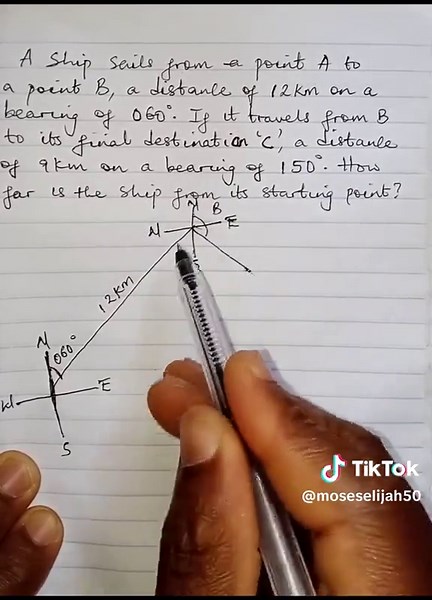 A Ship Sails from a point A to
a point B, a distance of 12km on a
bearing of 060°. If it travels from B
to its final destination 'C', a distance
of 9km on a bearing of 150°. How
far is the ship from its starting point?
N
B
N
E
S
12km
N
060°
W
E
S
TikTok
@moseselijah50